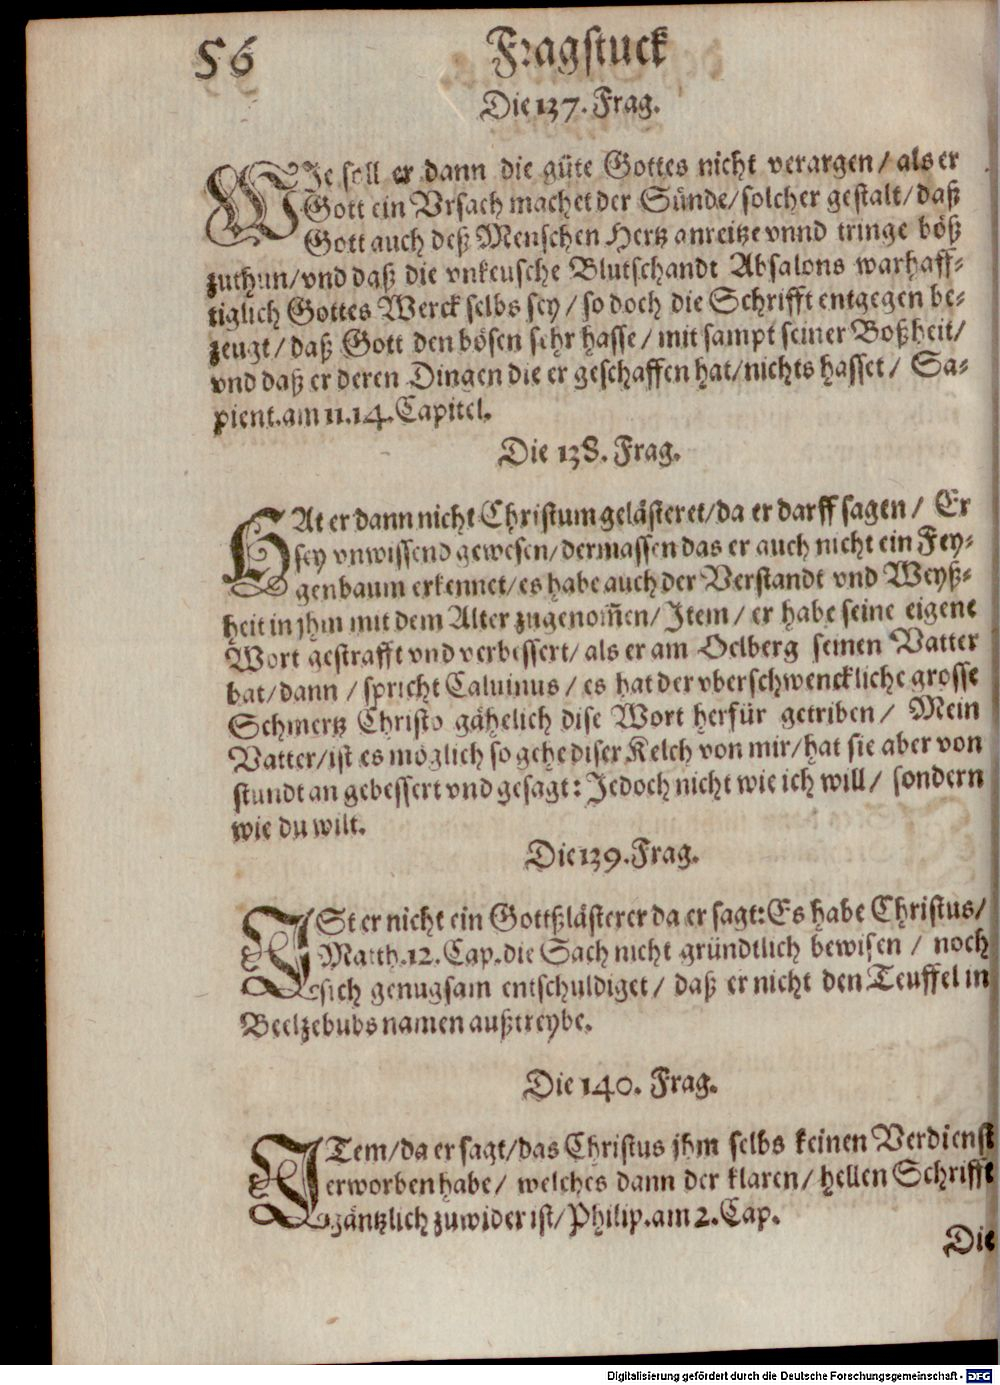 56
Fragstuck
Die 137. Frag.
WIe soll er dann die güte Gottes nicht verargen / als er
Gott ein Vrsach machet der Sünde / solcher gestalt / daß
Gott auch deß Menschen Hertz anreitze vnnd tringe böß
zuthun / vnd daß die vnkeusche Blutschandt Absalons warhaff-
tiglich Gottes Werck selbs sey / so doch die Schrifft entgegen be-
zeugt / daß Gott den bösen sehr hasse / mit sampt seiner Boßheit /
vnd daß er deren Dingen die er geschaffen hat / nichts hasset / Sa-
pient. am 11. 14. Capitel.
Die 138. Frag.
HAt er dann nicht Christum gelästeret / da er darff sagen / Er
sey vnwissend gewesen / dermassen das er auch nicht ein Fey-
genbaum erkennet / es habe auch der Verstandt vnd Weyß-
heit in jhm mit dem Alter zugenom̄en / Item / er habe seine eigene
Wort gestrafft vnd verbessert / als er am Oelberg seinen Vatter
bat / dann / spricht Caluinus / es hat der vberschwenckliche grosse
Schmertz Christo gähelich dise Wort herfür getriben / Mein
Vatter / ist es möglich so gehe diser Kelch von mir / hat sie aber von
stundt an gebessert vnd gesagt: Jedoch nicht wie ich will / sondern
wie du wilt.
Die 139. Frag.
ISt er nicht ein Gottßlästerer da er sagt: Es habe Christus /
Matth. 12. Cap. die Sach nicht gründtlich bewisen / noch
sich genugsam entschuldiget / daß er nicht den Teuffel in
Beelzebubs namen außtreybe.
Die 140. Frag.
ITem / da er sagt / das Christus jhm selbs keinen Verdienst
erworben habe / welches dann der klaren / hellen Schrifft
gäntzlich zuwider ist / Philip. am 2. Cap.
Die
Digitalisierung gefördert durch die Deutsche Forschungsgemeinschaft - DFG